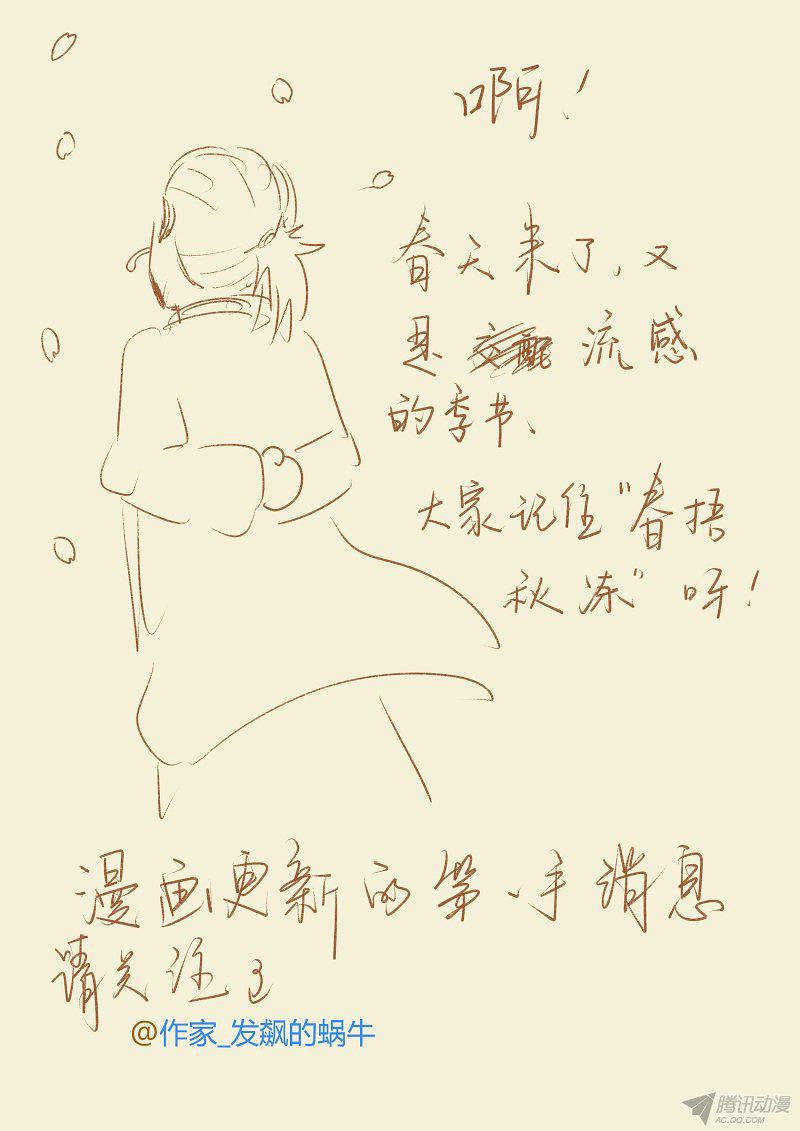 啊！
春天来了，又
是 流感
的季节、
大家记住"春捂
秋冻"呀！
漫画更新的第一手消息
请关注
@作家_发飙的蜗牛
腾讯动漫
AC.QQ.COM